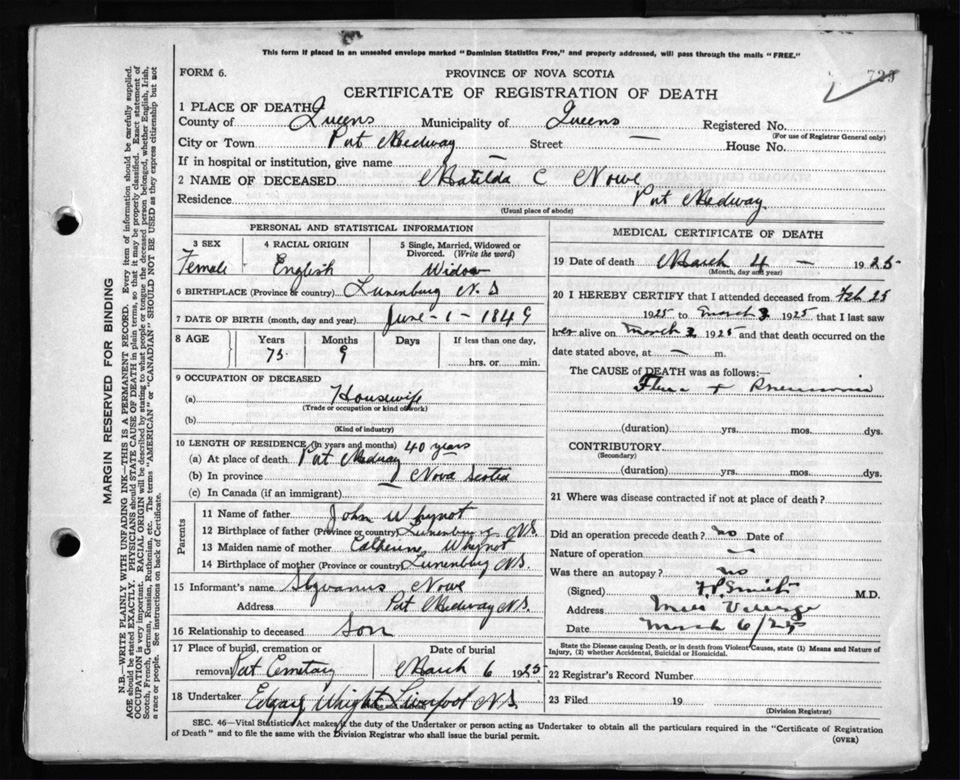 This form if placed in an unsealed envelope marked "Dominion Statistics Free," and properly addressed, will pass through the mails "FREE."
FORM 6.
PROVINCE OF NOVA SCOTIA
CERTIFICATE OF REGISTRATION OF DEATH
1 PLACE OF DEATH
County of Queens Municipality of Queens Registered No.
(For use of Registrar General only)
City or Town Port Medway Street — House No.
If in hospital or institution, give name —
2 NAME OF DECEASED Matilda C Nowe
Residence Port Medway
(Usual place of abode)
PERSONAL AND STATISTICAL INFORMATION
3 SEX 4 RACIAL ORIGIN 5 Single, Married, Widowed or Divorced. (Write the word)
Female English Widow
6 BIRTHPLACE (Province or country) Lunenburg N.S
7 DATE OF BIRTH (month, day and year) June - 1 - 1849
8 AGE Years Months Days If less than one day,
75 9 hrs. or min.
9 OCCUPATION OF DECEASED
(a) Housewife
(Trade or occupation or kind of work)
(b)
(Kind of industry)
10 LENGTH OF RESIDENCE (in years and months) 40 years
(a) At place of death Port Medway
(b) In province Nova Scotia
(c) In Canada (if an immigrant) —
Parents
11 Name of father John Whynot
12 Birthplace of father (Province or country) Lunenburg N.S.
13 Maiden name of mother Catherine Whynot
14 Birthplace of mother (Province or country) Lunenburg N.S.
15 Informant's name Sylvanus Nowe
Address Port Medway N.S.
16 Relationship to deceased Son
17 Place of burial, cremation or Date of burial
removal Port Cemetary March 6 1925
18 Undertaker Edgar Wright Liverpool N.S.
MEDICAL CERTIFICATE OF DEATH
19 Date of death March 4 — 1925
(Month, day and year)
20 I HEREBY CERTIFY that I attended deceased from Feb 25
1925 to March 3 1925 that I last saw
her alive on March 3 1925 and that death occurred on the
date stated above, at — m.
The CAUSE of DEATH was as follows:—
Flu + Pneumonia
(duration) yrs. mos. dys.
CONTRIBUTORY
(Secondary)
(duration) yrs. mos. dys.
21 Where was disease contracted if not at place of death?
Did an operation precede death? no Date of
Nature of operation —
Was there an autopsy? no
(Signed) F.P. Smith M.D.
Address Mill Village
Date March 6/25
State the Disease causing Death, or in death from Violent Causes, state (1) Means and Nature of Injury, (2) whether Accidental, Suicidal or Homicidal.
22 Registrar's Record Number
23 Filed 19
(Division Registrar)
SEC. 46—Vital Statistics Act makes it the duty of the Undertaker or person acting as Undertaker to obtain all the particulars required in the "Certificate of Registration
of Death" and to file the same with the Division Registrar who shall issue the burial permit.
(OVER)
MARGIN RESERVED FOR BINDING
N.B.—WRITE PLAINLY WITH UNFADING INK—THIS IS A PERMANENT RECORD. Every item of information should be carefully supplied.
AGE should be stated EXACTLY. PHYSICIANS should STATE CAUSE OF DEATH in plain terms, so that it may be properly classified. Exact statement of
OCCUPATION is very important. RACIAL ORIGIN will be described by stating to what people or tongue the deceased person belonged, whether English, Irish,
Scotch, French, German, Russian, Ruthenian, etc. The terms "AMERICAN" or "CANADIAN" SHOULD NOT BE USED as they express citizenship but not
a race or people. See instructions on back of Certificate.